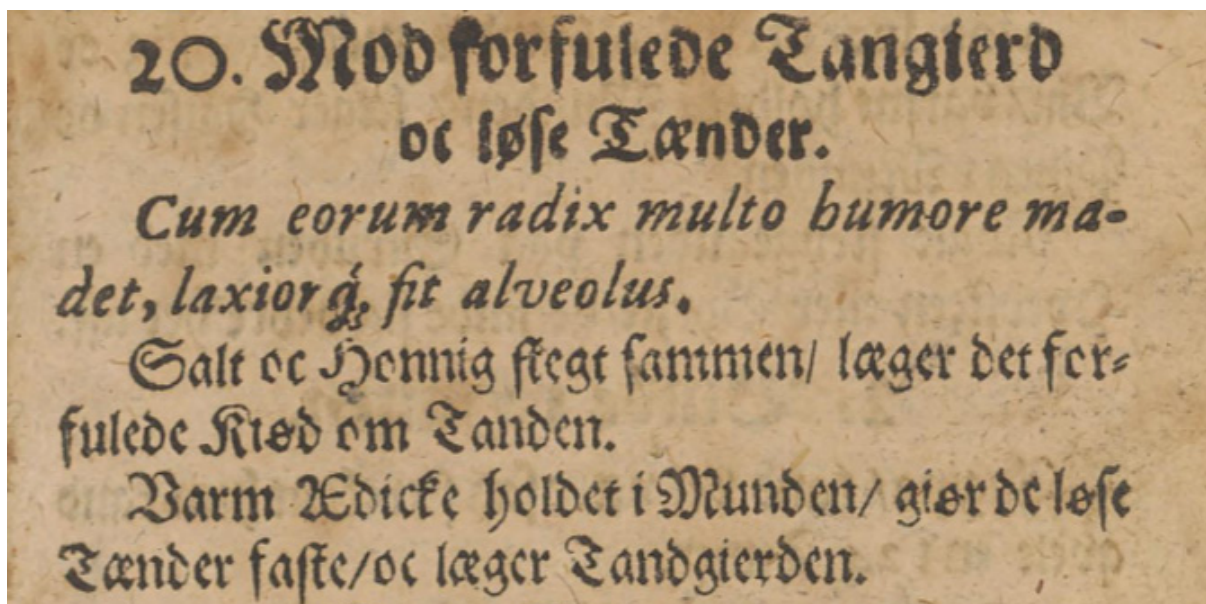 20. Mod forfulede Tangierd
oc løse Tænder.
Cum eorum radix multo humore ma-
det, laxiorq́; fit alveolus.
Salt oc Honnig stegt sammen/ læger det for-
fulede Kiød om Tanden.
Varm Ædicke holdet i Munden/ giør de løse
Tænder faste/oc læger Tandgierden.